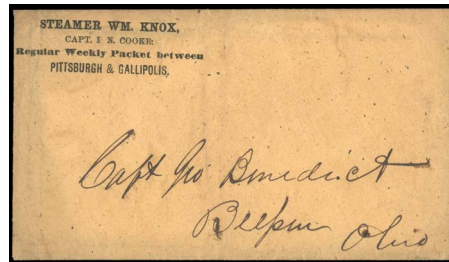 STEAMER WM. KNOX,
CAPT. I. N. COOKE:
Regular Weekly Packet between
PITTSBURGH & GALLIPOLIS,
Capt Geo Benedict
Ohio